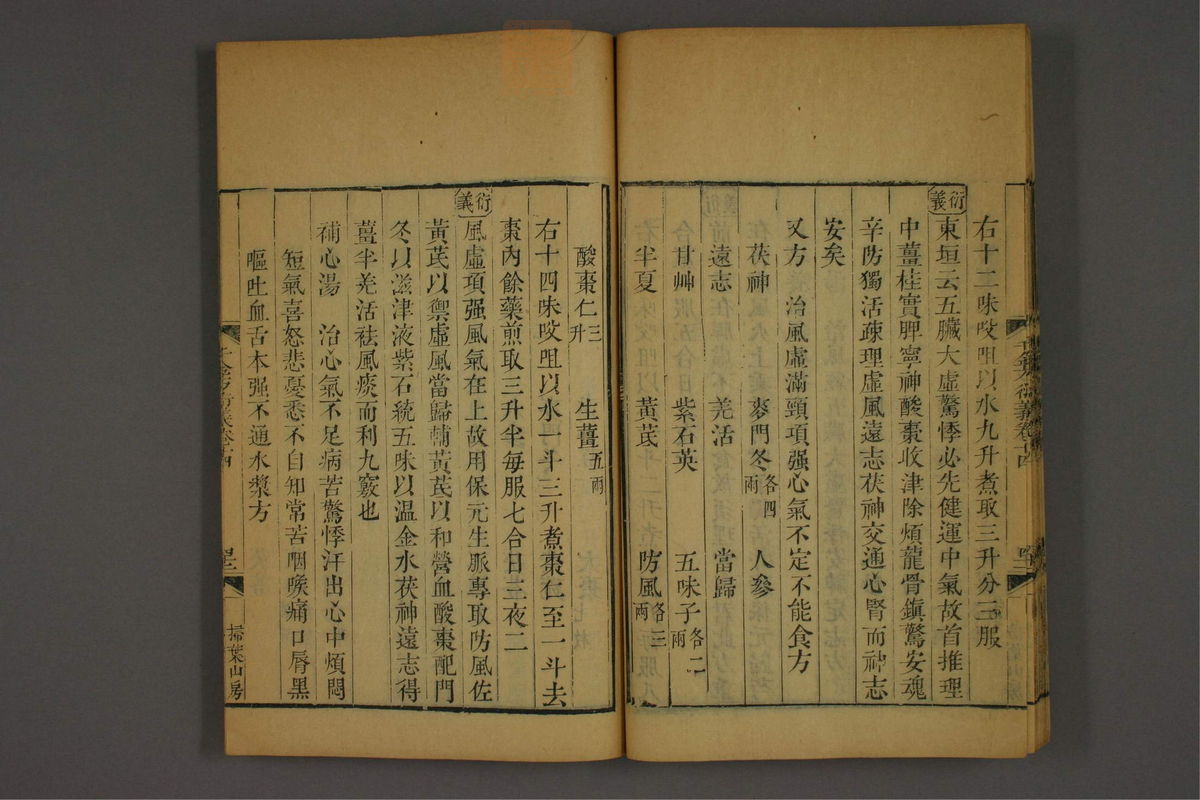 右十二味㕮咀以水九升煮取三升分三服
衍義
東垣云五臟大虛驚悸必先健運中氣故首推理
中薑桂實脾寧神酸棗收津除煩龍骨鎮驚安魂
辛防獨活疎理虛風遠志茯神交通心腎而神志
安矣
又方 治風虛滿頸項强心氣不定不能食方
茯神 麥門冬各四兩 人參
遠志 羌活 當歸
甘艸 紫石英 五味子各二兩
半夏 黃芪 防風各三兩
酸棗仁三升 生薑五兩
右十四味㕮咀以水一斗三升煮棗仁至一斗去
棗內餘藥煎取三升半每服七合日三夜二
衍義
風虛項强風氣在上故用保元生脈專取防風佐
黃芪以禦虛風當歸輔黃芪以和營血酸棗配門
冬以滋津液紫石統五味以温金水茯神遠志得
薑半羌活祛風痰而利九竅也
補心湯 治心氣不足病苦驚悸汗出心中煩悶
短氣喜怒悲憂悉不自知常苦咽喉痛口唇黑
嘔吐血舌本强不通水漿方
千金方衍義卷十四
掃葉山房